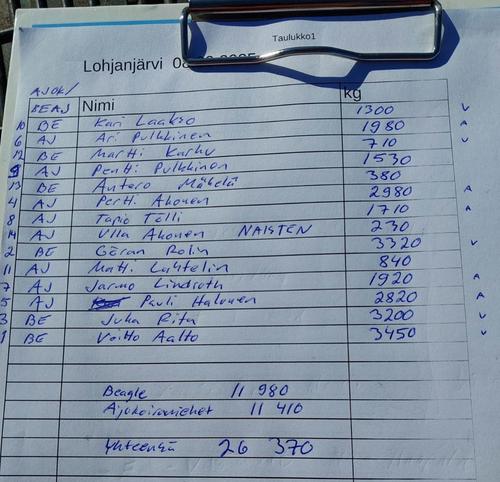 Taulukko1
Lohjanjärvi
AJOK/
BEAJ Nimi kg
10 BE Kari Laakso 1300 V
6 AJ Ari Pulkkinen 1980 A
12 BE Martti Karhu 710 V
9 AJ Pentti Pulkkinen 1530
13 BE Antero Mäkelä 380
4 AJ Pertti Ahonen 2980 A
8 AJ Tapio Tolli 1710 A
14 AJ Ulla Ahonen NAISTEN 230
2 BE Göran Rolin 3320 V
11 AJ Matti Lahtelin 840
7 AJ Jarmo Lindroth 1920 A
5 AJ Pauli Halonen 2820 A
3 BE Juha Rita 3200 V
1 BE Voitto Aalto 3450 V
Beagle 11 980
Ajokoiramiehet 11 410
Yhteensä 26 370